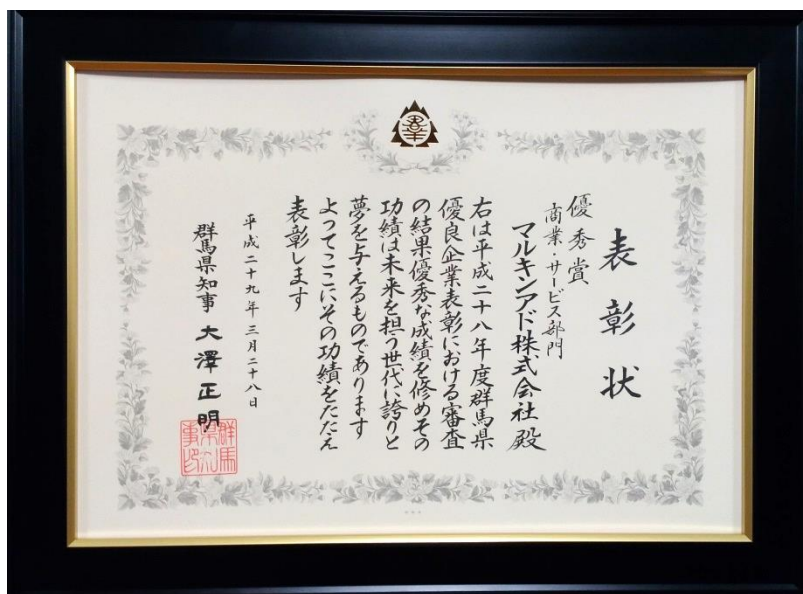 表彰状
優秀賞
商業・サービス部門
マルキンアド株式会社殿
右は平成二十八年度群馬県
優良企業表彰における審査
の結果優秀な成績を修めその
功績は未来を担う世代に誇りと
夢を与えるものであります
よってここにその功績をたたえ
表彰します
平成二十九年三月二十八日
群馬県知事 大澤正明
群馬
県知
事印